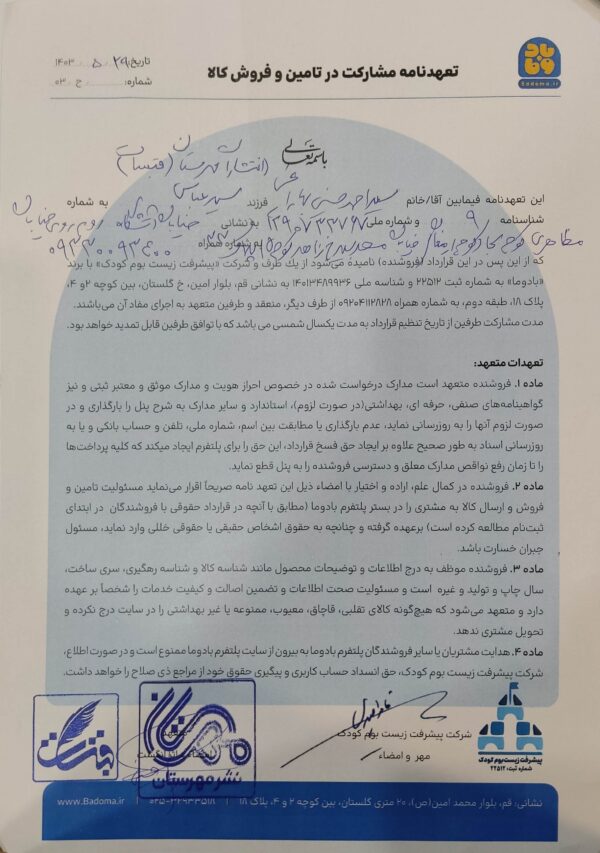 باد
وما
Badoma.ir
تعهدنامه مشارکت در تامین و فروش کالا
تاریخ: ۱۴۰۳/۵/۲۹
شماره: ج ۰۳
باسمه تعالی
انتشارات مهرستان (قبسات)
این تعهدنامه فیمابین آقا/خانم سید احمد حسنی فرزند سید عباس به شماره
شناسنامه ۹ و شماره ملی به نشانی خیابان دانشگاه روبروی خیابان
مظاهری کوچه به شماره همراه
که از این پس در این قرارداد (فروشنده) نامیده می‌شود از یك طرف و شرکت «پیشرفت زیست بوم کودک» با برند
«بادوما» به شماره ثبت ۲۲۵۱۲ و شناسه ملی ۱۴۰۱۳۴۸۹۹۳۶ به نشانی قم، بلوار امین، خ گلستان، بین کوچه ۲و ۴،
پلاک ۱۸، طبقه دوم، به شماره همراه ۰۹۲۰۴۱۱۲۸۲۸ از طرف دیگر، منعقد و طرفین متعهد به اجرای مفاد آن می‌باشند.
مدت مشارکت طرفین از تاریخ تنظیم قرارداد به مدت یکسال شمسی می باشد که با توافق طرفین قابل تمدید خواهد بود.
تعهدات متعهد:
ماده ۱. فروشنده متعهد است مدارک درخواست شده در خصوص احراز هویت و مدارک موثق و معتبر ثبتی و نیز
گواهینامه‌های صنفی، حرفه ای، بهداشتی(در صورت لزوم)، استاندارد و سایر مدارک به شرح پنل را بارگذاری و در
صورت لزوم آنها را به روزرسانی نماید، عدم بارگذاری یا مطابقت بین اسم، شماره ملی، تلفن و حساب بانکی و یا به
روزرسانی اسناد به طور صحیح علاوه بر ایجاد حق فسخ قرارداد، این حق را برای پلتفرم ایجاد میکند که کلیه پرداخت‌ها
را تا زمان رفع نواقص مدارک معلق و دسترسی فروشنده را به پنل قطع نماید.
ماده ۲. فروشنده در کمال علم، اراده و اختیار با امضاء ذیل این تعهد نامه صریحاً اقرار می‌نماید مسئولیت تامین و
فروش و ارسال کالا به مشتری را در بستر پلتفرم بادوما (مطابق با آنچه در قرارداد حقوقی با فروشندگان در ابتدای
ثبت‌نام مطالعه کرده است) برعهده گرفته و چنانچه به حقوق اشخاص حقیقی یا حقوقی خللی وارد نماید، مسئول
جبران خسارت باشد.
ماده ۳. فروشنده موظف به درج اطلاعات و توضیحات محصول مانند شناسه کالا و شناسه رهگیری، سری ساخت،
سال چاپ و تولید و غیره است و مسئولیت صحت اطلاعات و تضمین اصالت و کیفیت خدمات را شخصاً بر عهده
دارد و متعهد می‌شود که هیچ‌گونه کالای تقلبی، قاچاق، معیوب، ممنوعه یا غیر بهداشتی را در سایت درج نکرده و
تحویل مشتری ندهد.
ماده ۴. هدایت مشتریان یا سایر فروشندگان پلتفرم بادوما به بیرون از سایت پلتفرم بادوما ممنوع است و در صورت اطلاع،
شرکت پیشرفت زیست بوم کودک، حق انسداد حساب کاربری و پیگیری حقوق خود از مراجع ذی صلاح را خواهد داشت.
شرکت پیشرفت زیست بوم کودک
مهر و امضاء
پیشرفت زیست بوم کودک
شماره ثبت: ۲۲۵۱۲
متعهد
نشر مهرستان
قبسات
نشانی: قم، بلوار محمد امین(ص)، ۲۰ متری گلستان، بین کوچه ۲ و ۴، پلاک ۱۸
۰۲۵-۳۲۹۳۳۵۱۸
www.Badoma.ir